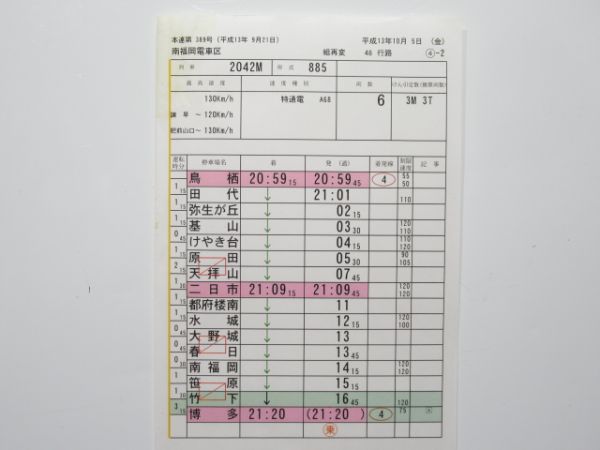 本達第 389号 (平成13年 9月21日) 平成13年10月 5日 (金)
南福岡電車区 組再変 46 行路 ④-2
列車 2042M 形式 885
最高速度 速度種別 両数 けん引定数(換算両数)
130Km/h 特通電 A68 6 3M 3T
諫早～ 120Km/h
肥前山口～ 130Km/h
運転時分 停車場名 着 発(通) 着発線 制限速度 記事
鳥栖 20:59 15 20:59 45 ④ 55 50
1 15 田代 ↓ 21:01 110
1 15 弥生が丘 ↓ 02 15
1 15 基山 ↓ 03 30 120 110
0 45 けやき台 ↓ 04 15 110 120
1 15 原田 ↓ 05 30 90 105
2 15 天拝山 ↓ 07 45
1 30 二日市 21:09 15 21:09 45 120 120
1 15 都府楼南 ↓ 11
1 15 水城 ↓ 12 15 120 100
0 45 大野城 ↓ 13
0 45 春日 ↓ 13 45
0 30 南福岡 ↓ 14 15 120 120
1 笹原 ↓ 15 15
1 30 竹下 ↓ 16 45 120
3 15 博多 21:20 (21:20 ) ④ 75
東